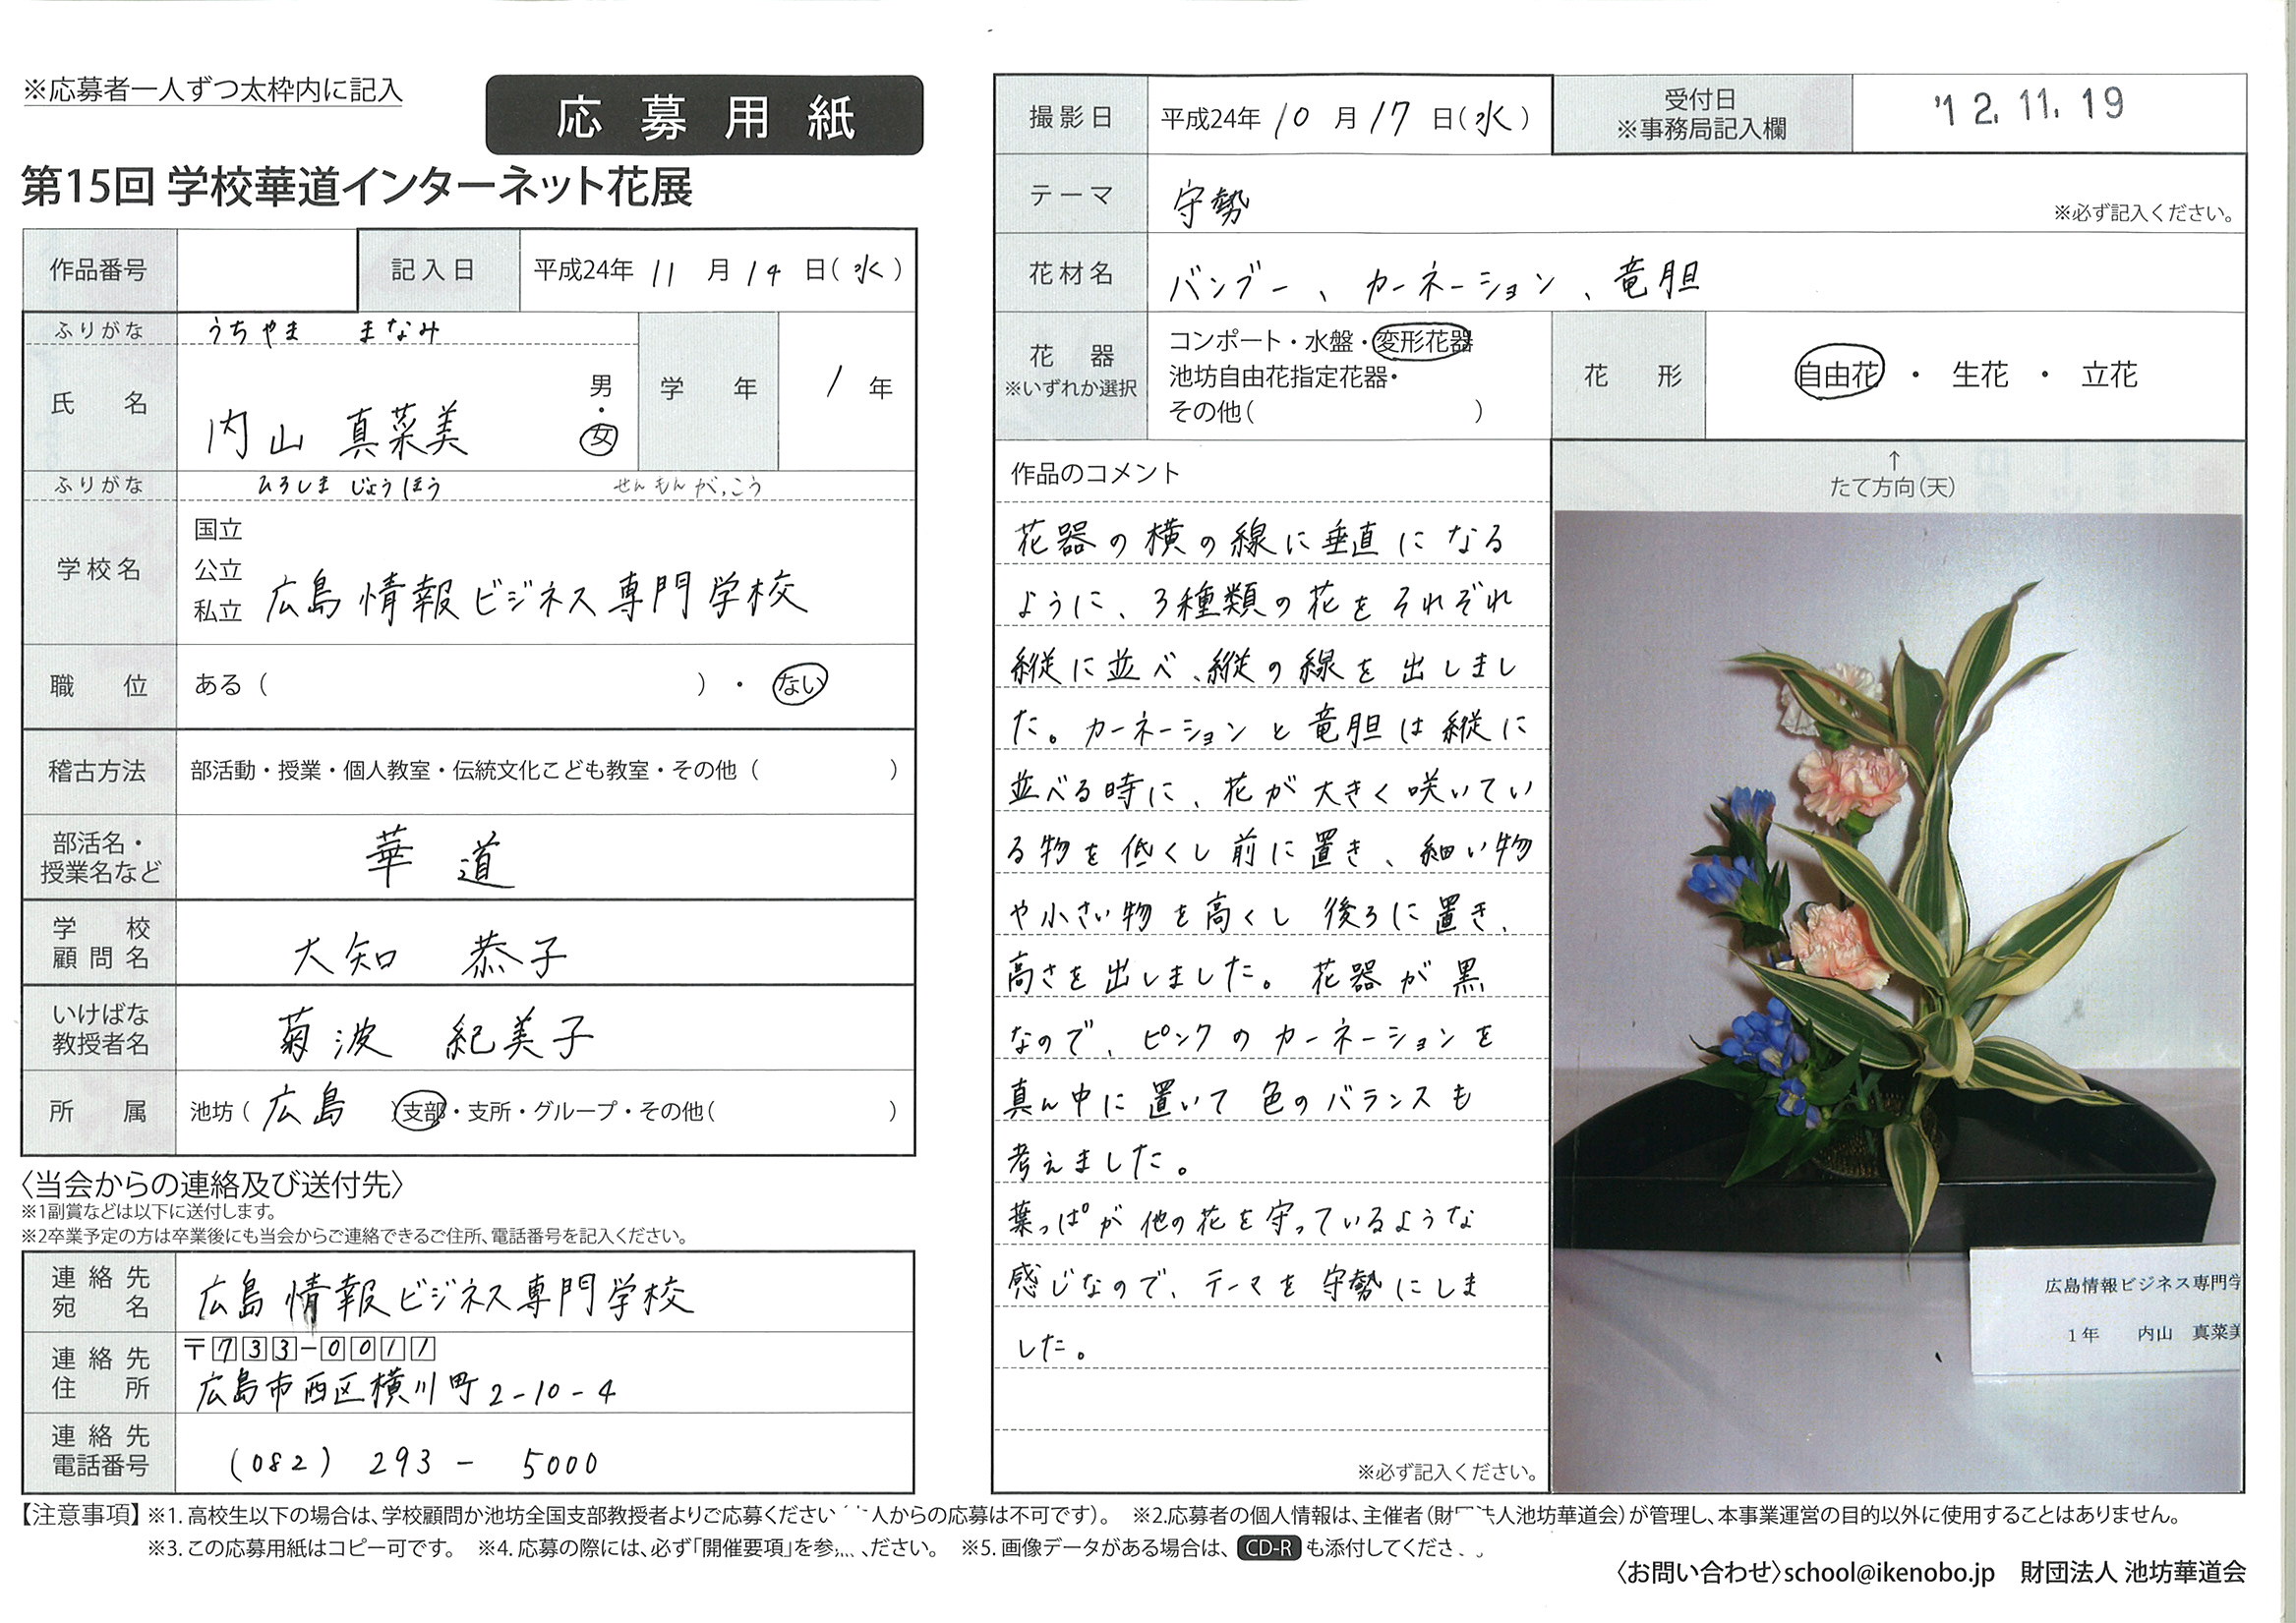 ※応募者一人ずつ太枠内に記入
応募用紙
第15回 学校華道インターネット花展
作品番号
記入日 平成24年 11月14日(水)
ふりがな うちやま まなみ
氏名 内山 真菜美 男・女
学年 1年
ふりがな ひろしま じょうほう せんもんがっこう
学校名 国立 公立 私立 広島情報ビジネス専門学校
職位 ある( )・ない
稽古方法 部活動・授業・個人教室・伝統文化こども教室・その他( )
部活名・授業名など 華道
学校顧問名 大知 恭子
いけばな教授者名 菊波 紀美子
所属 池坊(広島)支部・支所・グループ・その他( )
〈当会からの連絡及び送付先〉
※1副賞などは以下に送付します。
※2卒業予定の方は卒業後にも当会からご連絡できるご住所、電話番号を記入ください。
連絡先宛名 広島情報ビジネス専門学校
連絡先住所 〒733-0011
広島市西区横川町2-10-4
連絡先電話番号 (082) 293-5000
撮影日 平成24年10月17日(水)
受付日 ※事務局記入欄 '12.11.19
テーマ 守勢 ※必ず記入ください。
花材名 バンブー、カーネーション、竜胆
花器 ※いずれか選択
コンポート・水盤・変形花器
池坊自由花指定花器・
その他( )
花形 自由花・生花・立花
作品のコメント
花器の横の線に垂直になる
ように、3種類の花をそれぞれ
縦に並べ、縦の線を出しまし
た。カーネーションと竜胆は縦に
並べる時に、花が大きく咲いてい
る物を低くし前に置き、細い物
や小さい物を高くし後ろに置き、
高さを出しました。花器が黒
なので、ピンクのカーネーションを
真ん中に置いて色のバランスも
考えました。
葉っぱが他の花を守っているような
感じなので、テーマを守勢にしま
した。
※必ず記入ください。
↑
たて方向(天)
広島情報ビジネス専門学
1年 内山 真菜美
【注意事項】※1.高校生以下の場合は、学校顧問か池坊全国支部教授者よりご応募ください 人からの応募は不可です)。 ※2.応募者の個人情報は、主催者(財団法人池坊華道会)が管理し、本事業運営の目的以外に使用することはありません。
※3.この応募用紙はコピー可です。 ※4.応募の際には、必ず「開催要項」を参 ください。 ※5.画像データがある場合は、CD-Rも添付してくださ
〈お問い合わせ〉school@ikenobo.jp 財団法人 池坊華道会